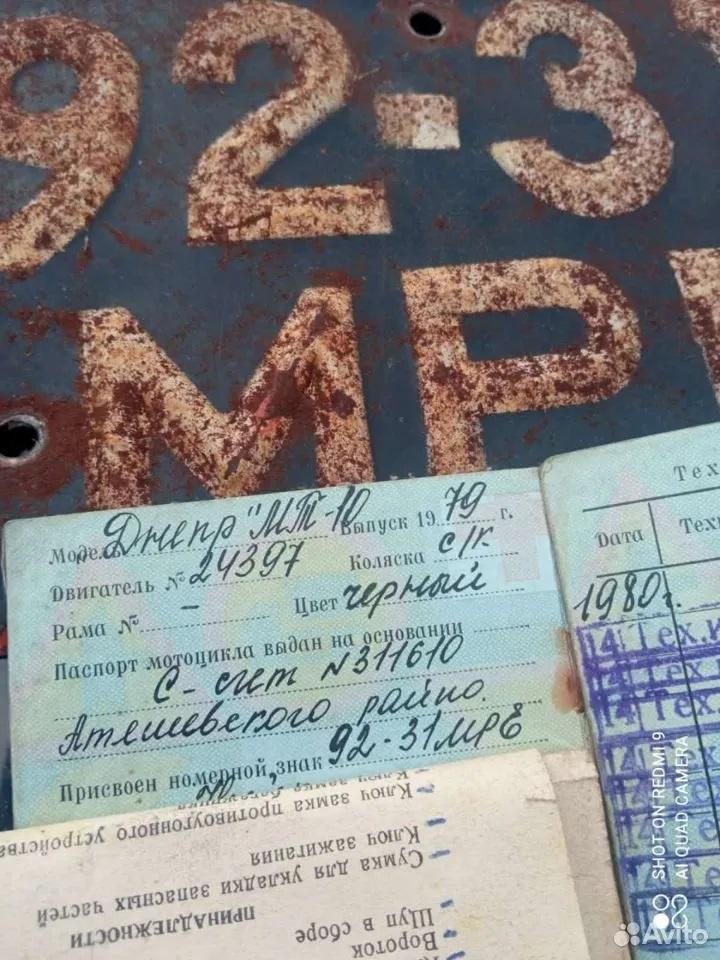 92-3
МР
Модель „Днепр" МТ-10 Выпуск 1979 г.
Двигатель № 24397 Коляска с/к
Рама № – Цвет черный
Паспорт мотоцикла выдан на основании
С-счет N311610
Атяшевского райпо.
Присвоен номерной знак 92-31 МРЕ
Тех
Дата Техн
1980 г.
14 Тех.
Тех.
14 Тех
Ключ замка противоугонного устройства
Ключ зажигания
Сумка для укладки запасных частей
ПРИНАДЛЕЖНОСТИ
Щуп в сборе
Вороток
SHOT ON REDMI 9
AI QUAD CAMERA
Avito